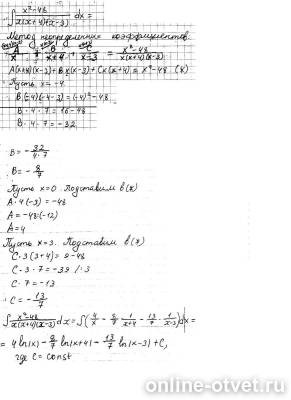 ∫ x²-48 / x(x+4)(x-3) dx =
Метод неопределенных коэффициентов.
A/x + B/x+4 + C/x-3 = x²-48 / x(x+4)(x-3)
A(x+4)(x-3) + Bx(x-3) + Cx(x+4) = x²-48 (*)
Пусть x = -4
B·(-4)(-4-3) = (-4)²-48
B·4·7 = 16-48
B·4·7 = -32
B = - 32/4·7
B = - 8/7
Пусть x=0. Подставим в (*)
A·4(-3) = -48
A = -48:(-12)
A = 4
Пусть x=3. Подставим в (*)
C·3(3+4) = 9-48
C·3·7 = -39 /:3
C·7 = -13
C = - 13/7
∫ x²-48 / x(x+4)(x-3) dx = ∫( 4/x - 8/7 · 1/x+4 - 13/7 · 1/x-3 )dx =
= 4 ln|x| - 8/7 ln|x+4| - 13/7 ln|x-3| + C,
где C = const
online-otvet.ru